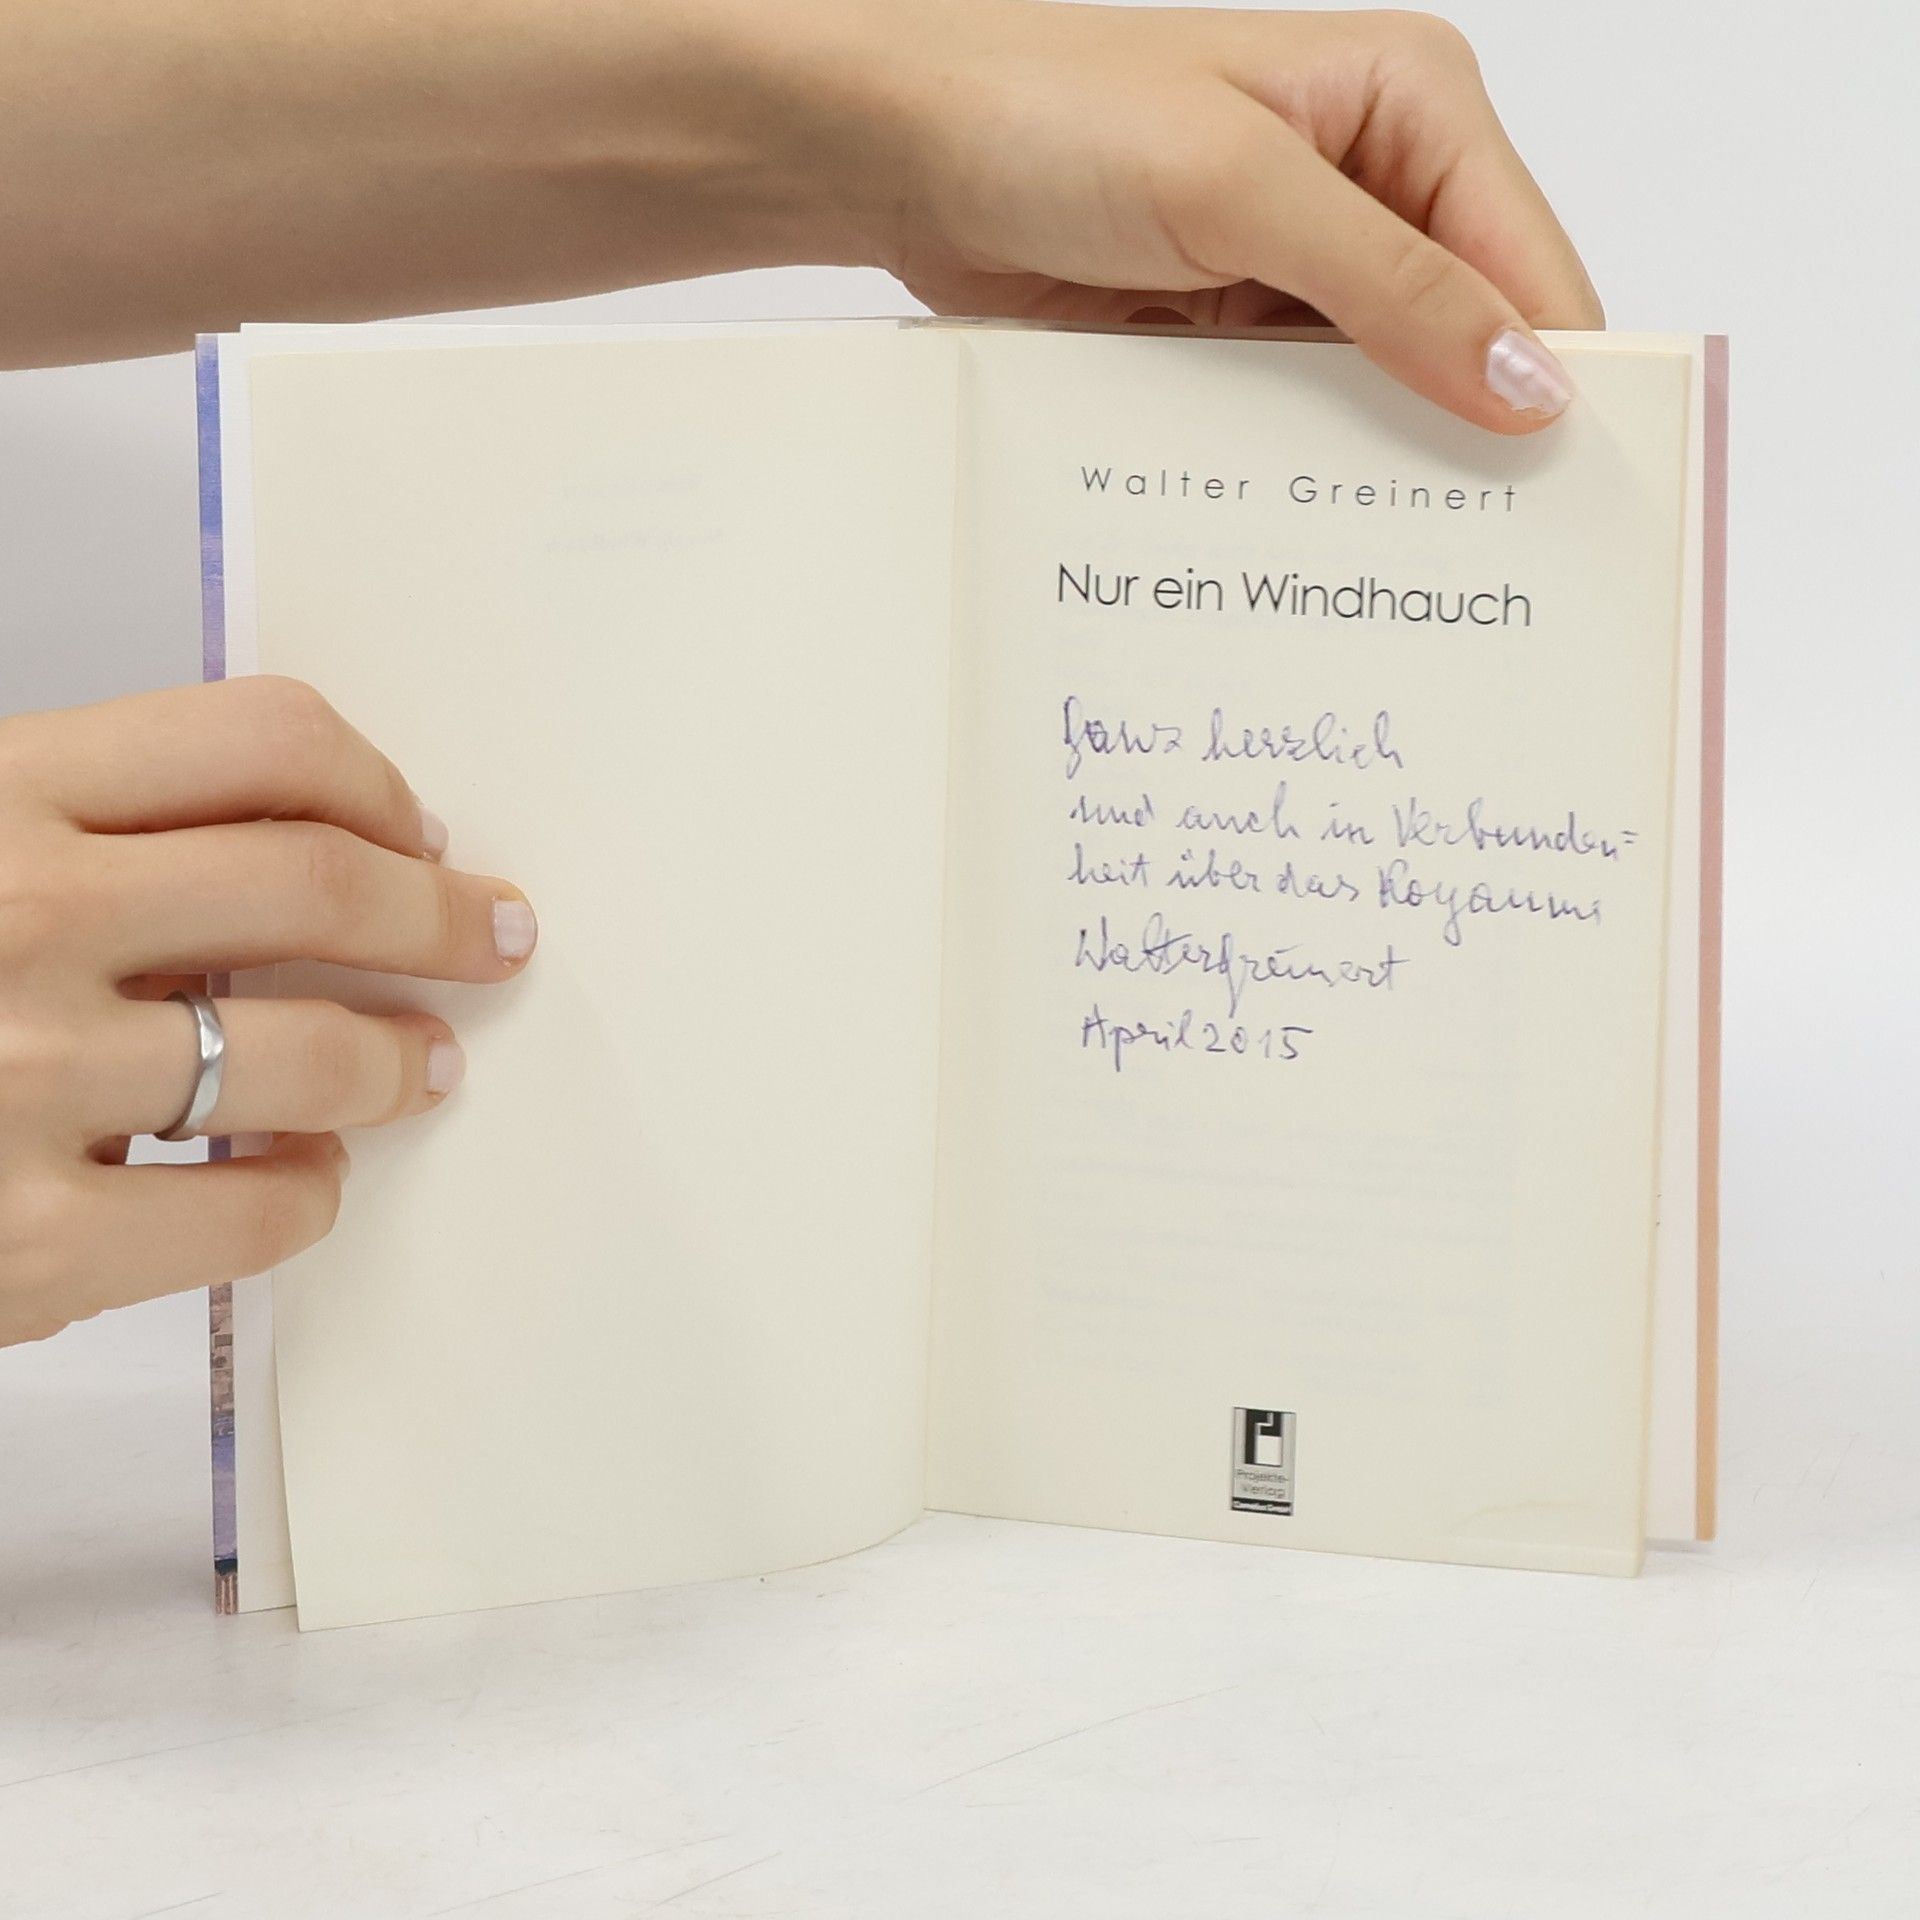 Walter Greinert
Nur ein Windhauch
Ganz herzlich
und auch in Verbunden=
heit über das Royaume
Walter Greinert
April 2015
Projekte-
Verlag